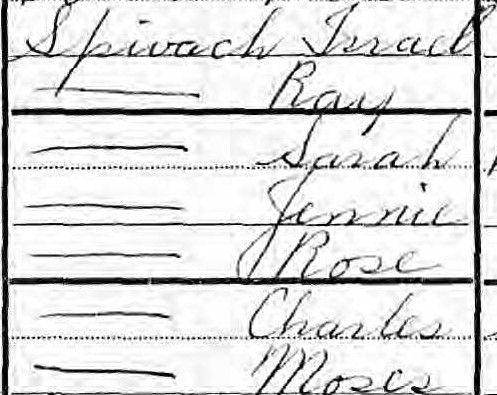 Spivach Israel
— Ray
— Sarah
— Jennie
— Rose
— Charles
— Moses